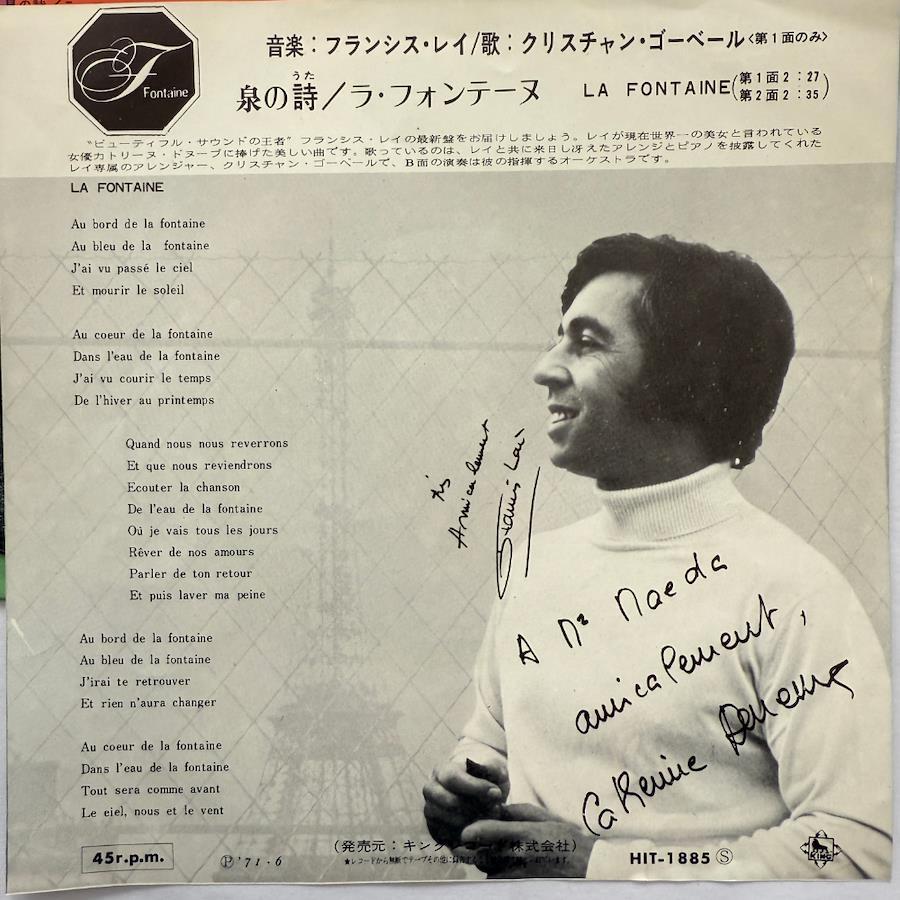 F
Fontaine
音楽：フランシス・レイ/歌：クリスチャン・ゴーベール〈第1面のみ〉
うた
泉の詩／ラ・フォンテーヌ LA FONTAINE(第1面2：27 第2面2：35)
“ビューティフル・サウンドの王者”フランシス・レイの最新盤をお届けしましょう。レイが現在世界一の美女と言われている
女優カトリーヌ・ドヌーブに捧げた美しい曲です。歌っているのは、レイと共に来日し冴えたアレンジとピアノを披露してくれた
レイ専属のアレンジャー、クリスチャン・ゴーベールで、B面の演奏は彼の指揮するオーケストラです。
LA FONTAINE
Au bord de la fontaine
Au bleu de la fontaine
J'ai vu passé le ciel
Et mourir le soleil
Au coeur de la fontaine
Dans l'eau de la fontaine
J'ai vu courir le temps
De l'hiver au printemps
Quand nous nous reverrons
Et que nous reviendrons
Ecouter la chanson
De l'eau de la fontaine
Où je vais tous les jours
Rêver de nos amours
Parler de ton retour
Et puis laver ma peine
Au bord de la fontaine
Au bleu de la fontaine
J'irai te retrouver
Et rien n'aura changer
Au coeur de la fontaine
Dans l'eau de la fontaine
Tout sera comme avant
Le eiel, nous et le vent
très
Amicalement
Francis Lai
A Mr Maeda
amicalement,
Catherine Deneuve
45r.p.m.
Ⓟ'71・6
(発売元：キングレコード株式会社)
HIT-1885 Ⓢ
KING